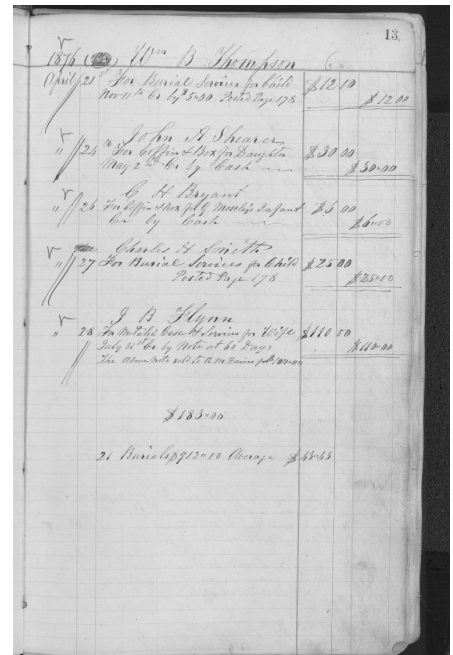 13
1876 Wm B Thompson
April 21st For Burial Services for Child $12.00
Nov 11th Cr by $5.00 Posted Page 178 $12.00
John A Shearer
" 24th For Coffin & Box for Daughter $30.00
May 2nd Cr by Cash $30.00
G H Bryant
" 26 For Coffin & Box for Infant $6.00
Cr by Cash $6.00
Charles H Smith
" 27 For Burial Services for Child $25.00
Posted Page 178 $25.00
J B Flynn
" 28 For Metalic Case & Services for Wife $110.00
July 31st Cr by Note at 60 Days $110.00
The above Note sold to for $100.00
$183.00
21 Burials $912.00 Average $43.43